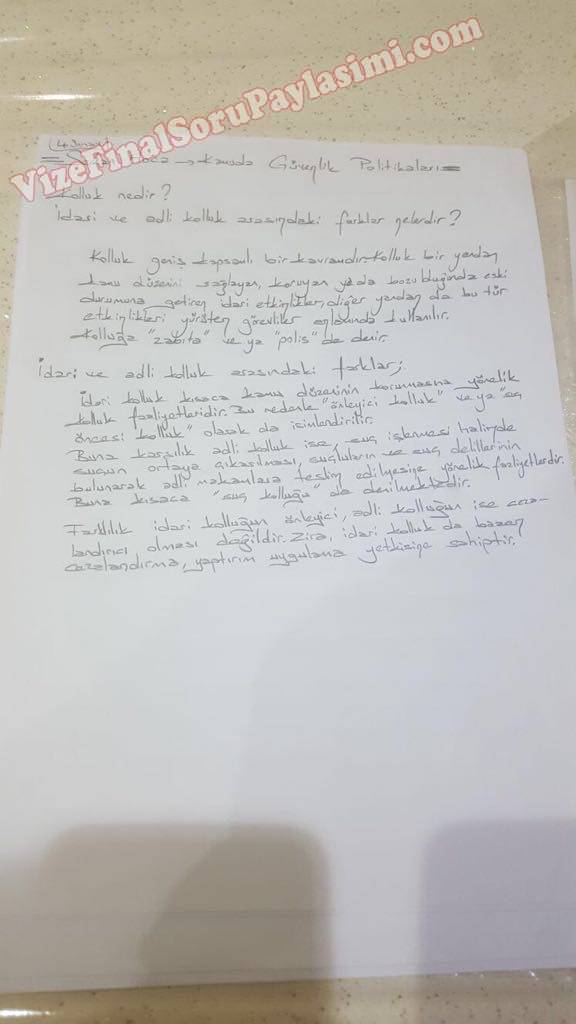 VizeFinalSoruPaylasimi.com
(4. Sınav)
Hoca → Kamuda Güvenlik Politikaları =
Kolluk nedir?
İdari ve adli kolluk arasındaki farklar nelerdir?
Kolluk geniş kapsamlı bir kavramdır. Kolluk bir yandan
kamu düzenini sağlayan, koruyan ya da bozulduğunda eski
durumuna getiren idari etkinlikler, diğer yandan da bu tür
etkinlikleri yürüten görevliler anlamında kullanılır.
Kolluğa "zabıta" ve ya "polis" de denir.
İdari ve adli kolluk arasındaki farklar;
İdari kolluk kısaca kamu düzeninin korunmasına yönelik
kolluk faaliyetleridir. Bu nedenle "önleyici kolluk" ve ya "suç
öncesi kolluk" olarak da isimlendirilir.
Buna karşılık adli kolluk ise, suç işlenmesi halinde
suçun ortaya çıkarılması, suçluların ve suç delillerinin
bulunarak adli makamlara teslim edilmesine yönelik faaliyetlerdir.
Buna kısaca "suç kolluğu" da denilmektedir.
Farklılık idari kolluğun önleyici, adli kolluğun ise ceza-
landırıcı olması değildir. Zira, idari kolluk da bazen
cezalandırma, yaptırım uygulama yetkisine sahiptir.